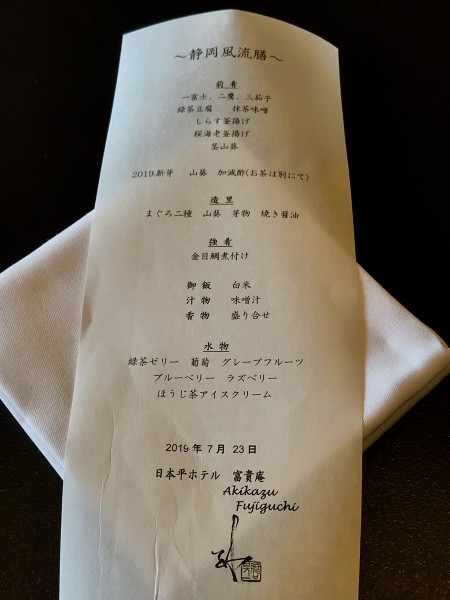 ～静岡風流膳～
前肴
一富士、二鷹、三茄子
緑茶豆腐　抹茶味噌
しらす釜揚げ
桜海老釜揚げ
茎山葵
2019.新芽　山葵　加減酢(お茶は別にて)
造里
まぐろ二種　山葵　芽物　焼き醤油
強肴
金目鯛煮付け
御飯　白米
汁物　味噌汁
香物　盛り合せ
水物
緑茶ゼリー　葡萄　グレープフルーツ
ブルーベリー　ラズベリー
ほうじ茶アイスクリーム
2019年7月23日
日本平ホテル　富貴庵
Akikazu
Fujiguchi